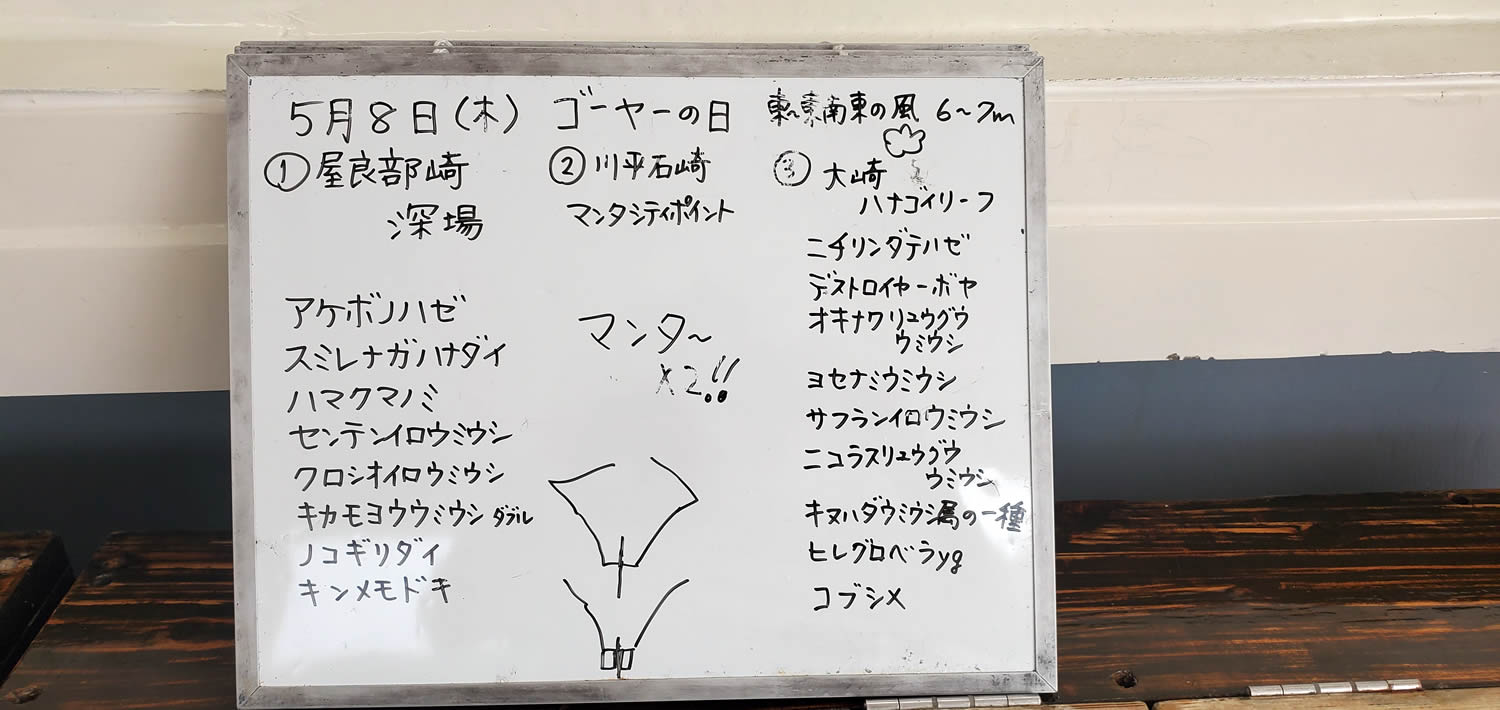 5月8日(木) ゴーヤーの日 東~東南東の風 6~7m
①屋良部崎
深場
アケボノハゼ
スミレナガハナダイ
ハマクマノミ
センテンイロウミウシ
クロシオイロウミウシ
キカモヨウウミウシ ダブル
ノコギリダイ
キンメモドキ
②川平石崎
マンタシティポイント
マンタ~
×2!!
③大崎
ハナゴイリーフ
ニチリンダテハゼ
デストロイヤーボヤ
オキナワリュウグウ
ウミウシ
ヨセナミウミウシ
サフランイロウミウシ
ニコラスリュウグウ
ウミウシ
キヌハダウミウシ属の一種
ヒレグロベラyg
コブシメ